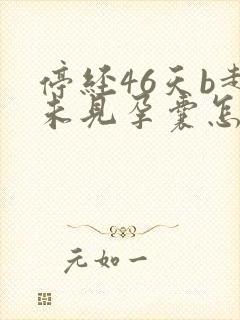 停经46天b超
未见孕囊怎
元如一